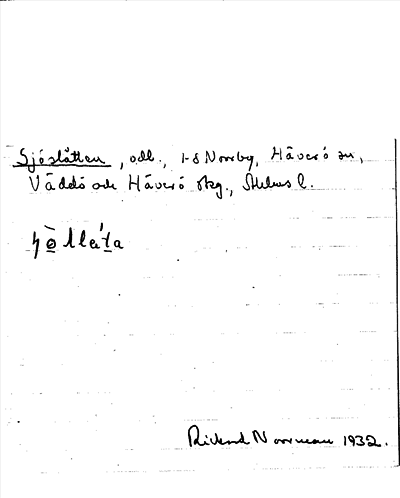 Sjöslåtten, odl., 1-8 Norrby, Häverö sn,
Väddö och Häverö skg., Sthlms l.
Rickard Norrman 1932.